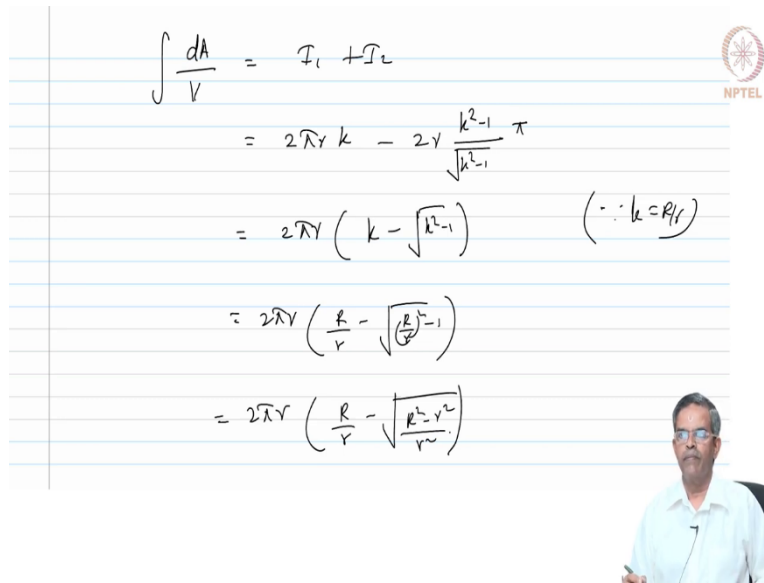 ∫ dA/V = I₁ + I₂
NPTEL
= 2πr k − 2r (k²−1)/√(k²−1) π
= 2πr ( k − √(k²−1) ) (∵ k = R/r)
= 2πr ( R/r − √((R/r)²−1) )
= 2πr ( R/r − √((R²−r²)/r²) )